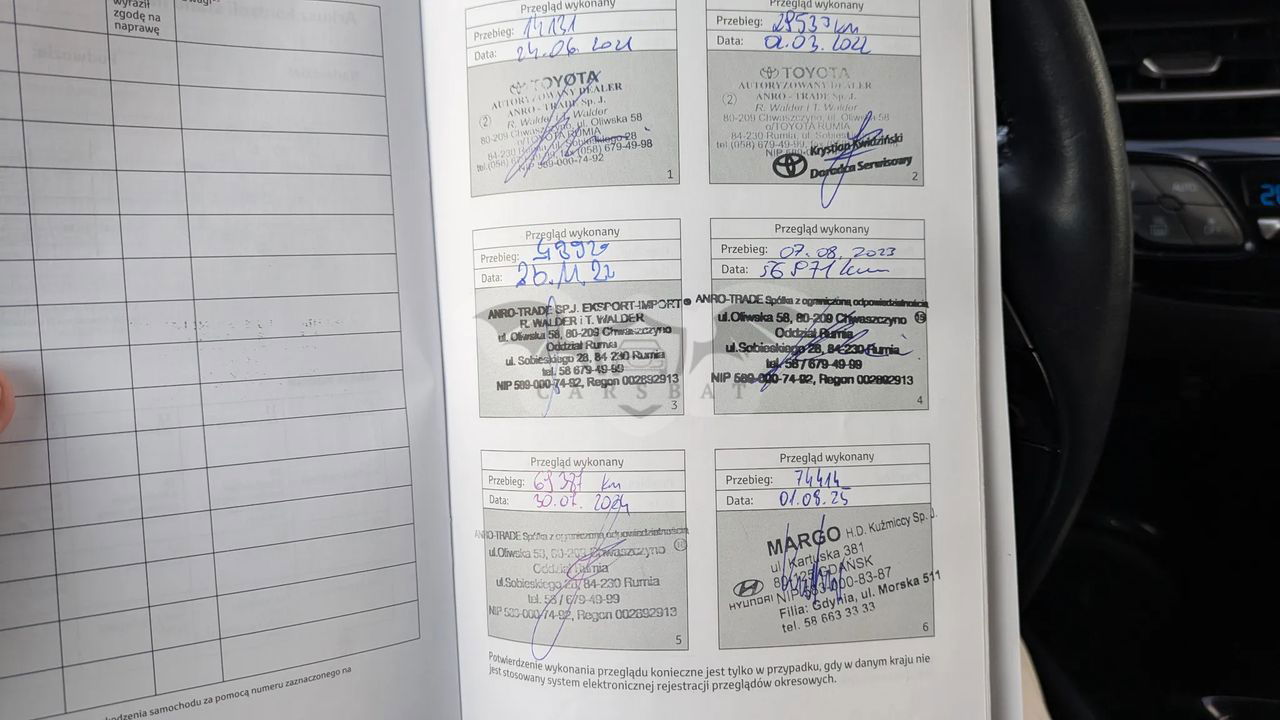 wyraził
zgodę na
naprawę
Przegląd wykonany
Przebieg: 14131
Data: 24.06.2021
TOYOTA
AUTORYZOWANY DEALER
ANRO - TRADE Sp. J.
R. Walder i T. Walder
80-209 Chwaszczyno, ul. Oliwska 58
o/TOYOTA RUMIA
84-230 Rumia, ul. Sobieskiego 28
tel. (058) 679-49-98
NIP 589-000-74-92
1
Przegląd wykonany
Przebieg: 29533 km
Data: 02.03.2022
TOYOTA
AUTORYZOWANY DEALER
ANRO - TRADE Sp. J.
R. Walder i T. Walder
80-209 Chwaszczyno, ul. Oliwska 58
o/TOYOTA RUMIA
84-230 Rumia, ul.
tel (058) 679-49-99,
Krystian Kwidziński
Doradca Serwisowy
2
Przegląd wykonany
Przebieg:
Data: 26.11.22
ANRO-TRADE SP.J. EKSPORT-IMPORT
R. WALDER i T. WALDER
ul. Oliwska 58, 80-209 Chwaszczyno
Oddział Rumia
ul. Sobieskiego 28, 84 230 Rumia
tel. 58 679-49-99
NIP 589-000-74-92, Regon 002892913
3
Przegląd wykonany
Przebieg: 07.08.2023
Data: 56 871 km
ANRO-TRADE Spółka z ograniczoną odpowiedzialnością
ul.Oliwska 58, 80-209 Chwaszczyno 19
Oddział Rumia
ul.Sobieskiego 28, 84-230 Rumia
tel. 58/679-49-99
NIP 589-000-74-92, Regon 002892913
4
CARSBAT
Przegląd wykonany
Przebieg: 69 387 km
Data: 30.07.2024
ANRO-TRADE Spółka z ograniczoną odpowiedzialnością
ul.Oliwska 58, 80-209 Chwaszczyno
Oddział Rumia
ul.Sobieskiego 28, 84-230 Rumia
tel. 58/679-49-99
NIP 589-000-74-92, Regon 002892913
5
Przegląd wykonany
Przebieg: 74414
Data: 01.08.25
MARGO H.D. Kuźmiccy Sp. J.
ul. Kartuska 381
GDAŃSK
HYUNDAI
Filia: Gdynia, ul. Morska 511
tel. 58 663 33 33
6
Potwierdzenie wykonania przeglądu konieczne jest tylko w przypadku, gdy w danym kraju nie
jest stosowany system elektronicznej rejestracji przeglądów okresowych.
samochodu za pomocą numeru zaznaczonego na
AUTO